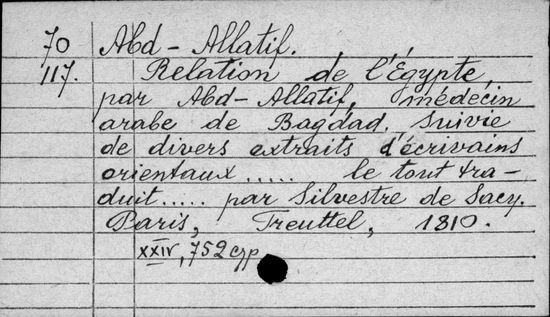 70 Abd-Allatif.
117. Relation de l'Égypte,
par Abd-Allatif, médecin
arabe de Bagdad. Suivie
de divers extraits d'écrivains
orientaux ..... le tout tra-
duit ..... par Silvestre de Sacy.
Paris, Treuttel, 1810.
XXIV, 752 стр.